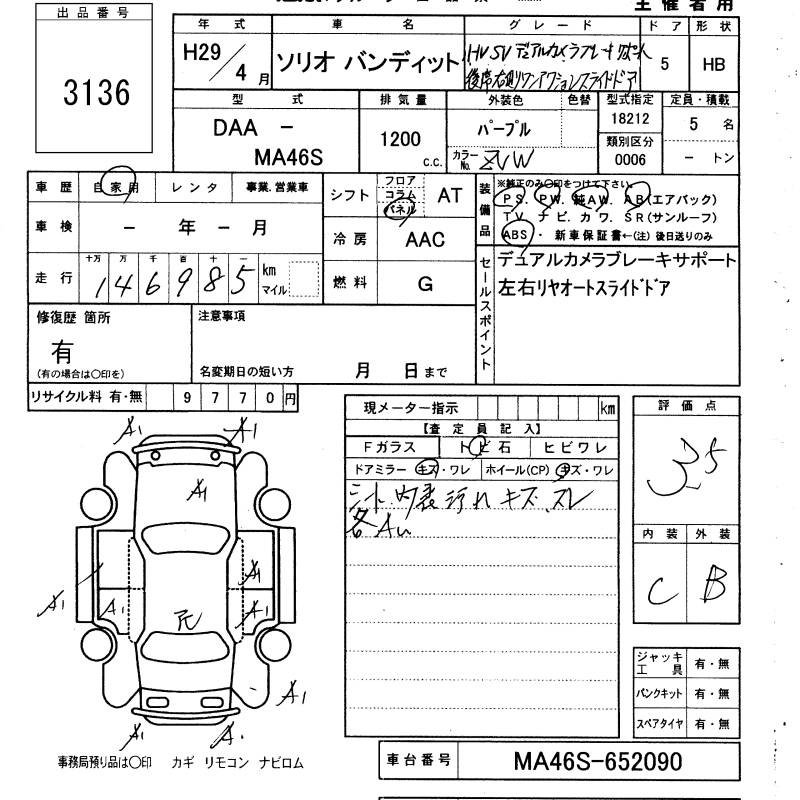 主催者用
出品番号
3136
年式 車名 グレード ドア 形状
H29/4月 ソリオ バンディット HV SV デュアルカメラブレーキサポート 5 HB
後席右側ワンアクションスライドドア
型式 排気量 外装色 色替 型式指定 定員・積載
DAA - 1200 c.c. パープル 18212 5 名
MA46S カラーNo. ZVW 類別区分 0006 - トン
車歴 自家用 レンタ 事業.営業車
シフト フロア コラム パネル AT
装備品 ※純正のみ〇印をつけて下さい。
PS. PW. 純AW. AB(エアバック)
TV. ナビ. カワ. SR(サンルーフ)
ABS ・ 新車保証書←(注) 後日送りのみ
車検 - 年 - 月
冷房 AAC
走行 十万 万 千 百 十 一
146985 km マイル
燃料 G
セールスポイント
デュアルカメラブレーキサポート
左右リヤオートスライドドア
修復歴 箇所
有
(有の場合は〇印を)
注意事項
名変期日の短い方 月 日まで
リサイクル料 有・無 9770円
現メーター指示 km
【査定員記入】
Fガラス トビ石 ヒビワレ
ドアミラー キズ・ワレ ホイール(CP) キズ・ワレ
シート、内装 汚れ キズ、スレ
各 AU
評価点
3.5
内装 外装
C B
A1 A1
A1
A1
A1 A1 A1
A1
A1
ジャッキ工具 有・無
パンクキット 有・無
スペアタイヤ 有・無
事務局預り品は〇印 カギ リモコン ナビロム
車台番号 MA46S-652090